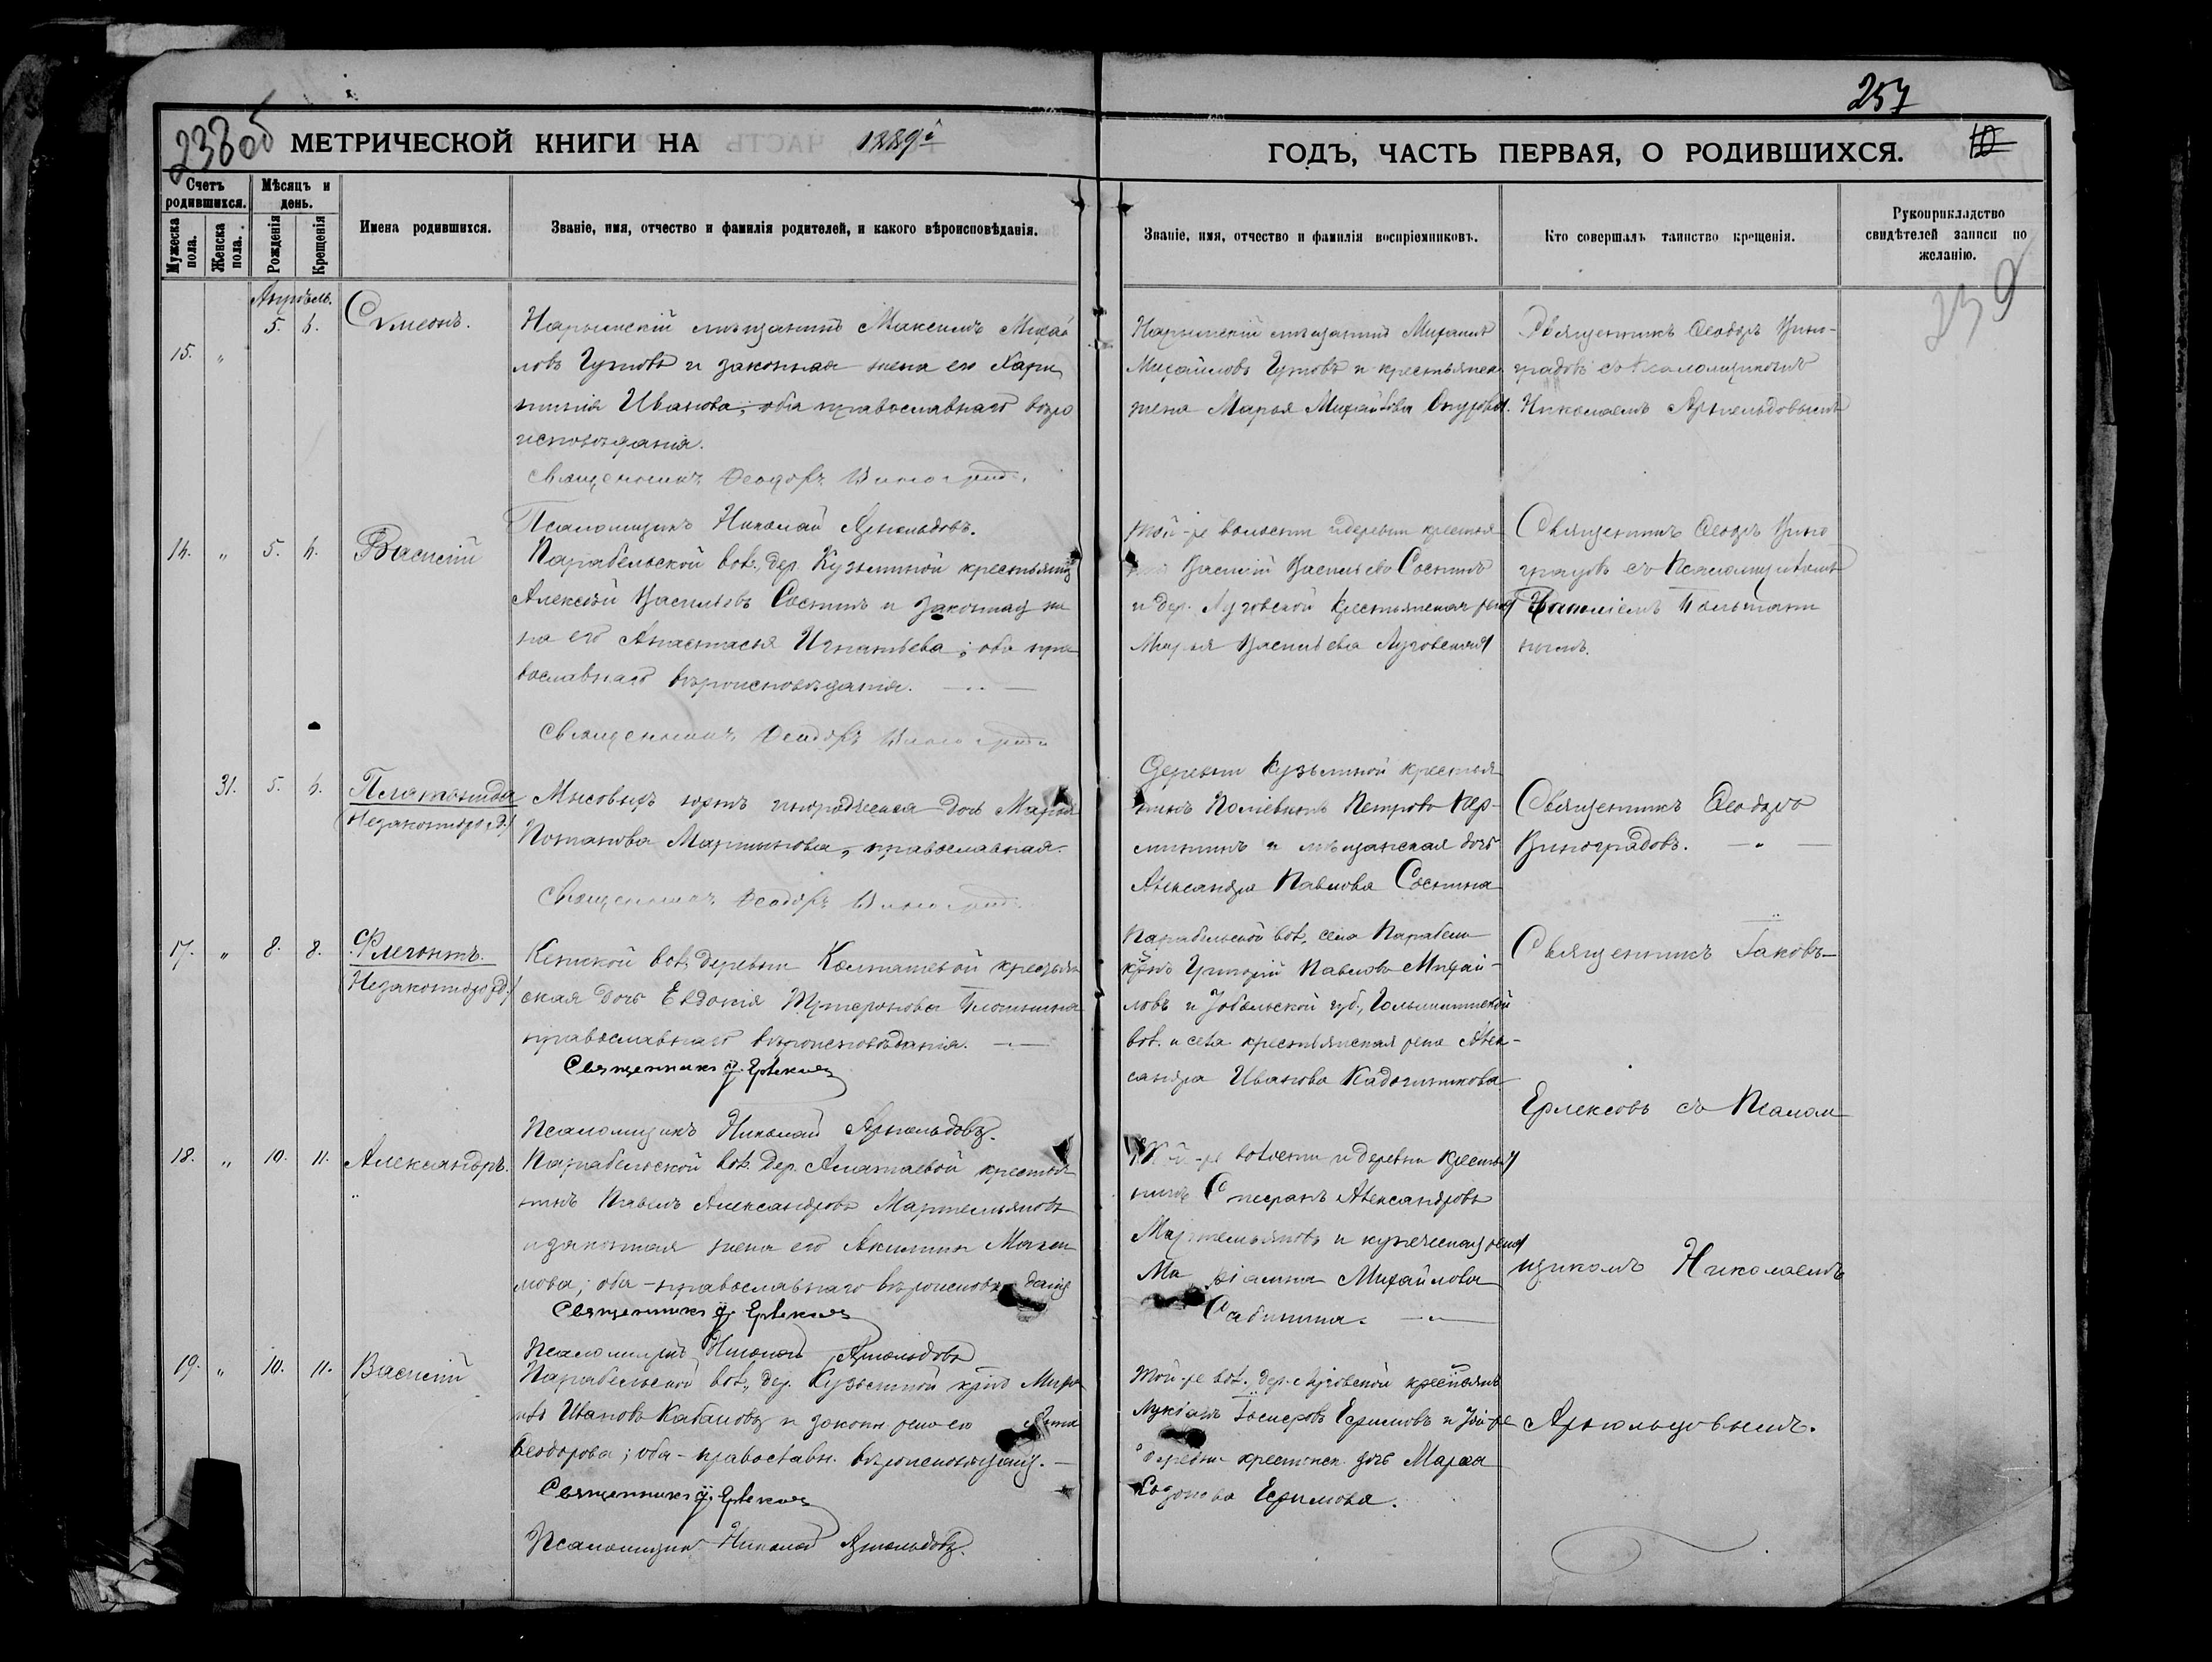 238об
257
МЕТРИЧЕСКОЙ КНИГИ НА 1889й
ГОДЪ, ЧАСТЬ ПЕРВАЯ, О РОДИВШИХСЯ.
10
Счетъ родившихся.
Мужеска пола.
Женска пола.
Мѣсяцъ и день.
Рожденія
Крещенія
Имена родившихся.
Званіе, имя, отчество и фамилія родителей, и какого вѣроисповѣданія.
Званіе, имя, отчество и фамилія воспріемниковъ.
Кто совершалъ таинство крещенія.
Рукоприкладство
свидѣтелей записи по
желанію.
239
Апрѣль.
15. " 5. 6. Сѵмеонъ.
Нарымскій мѣщанинъ Максимъ Михай
ловъ Гутовъ и законная жена его Хари
тинія Иванова; оба православнаго вѣро
исповѣданія.
Священникъ Ѳеодоръ Виноград.
Псаломщикъ Николай Арнольдовъ.
Нарымскій мѣщанинъ Михаилъ
Михайловъ Гутовъ и крестьянск.
жена Марья Михайлова
Священникъ Ѳеодоръ Вино-
градовъ съ псаломщикомъ
Николаемъ Арнольдовымъ
" 5. 6. Василій
Парабельской вол., дер. Кузьминой крестьянинъ
Алексѣй Васильевъ Соснинъ и законная же
на его Анастасья Игнатьева; оба пра
вославнаго вѣроисповѣданія.
Священникъ Ѳеодоръ Виноград
Той-же волости и деревни крестья
Василій Васильевъ Соснинъ
и дер. Луговской крестьянская жена
Марья Васильева Луговская
Священникъ Ѳеодоръ Вино
градовъ съ псаломщикомъ
31. 5. 6. Платонида
(незаконнорожд.)
Мысовыхъ юртъ инородческая дочь Марья
Потапова Мартынова, православная.
Священникъ Ѳеодоръ Виноград.
Деревни Кузьминой крестья
нинъ Петровъ
и мѣщанская дочь
Александра Павлова Соснина
Священникъ Ѳеодоръ
Виноградовъ.
17. " 8. 8. Флегонтъ.
Незаконнорожд.
Кетской вол. деревни Колпашевой крестьян
ская дочь Евдокія
православнаго вѣроисповѣданія.
Священникъ Ӏ. Ерлексовъ
Псаломщикъ Николай Арнольдовъ.
Парабельской вол. села Парабель
Григорій Павловъ Михай-
ловъ и Тобольской губ.,
вол. и села крестьянская жена Алек-
сандра Иванова
Священникъ Іаковъ
Ерлексовъ съ псалом
18. " 10. 11. Александръ.
Парабельской вол. дер. Алатаевой крестья
нинъ Павелъ Александровъ Мартемьяновъ
и законная жена его Акилина
мова; оба православнаго вѣроисповѣданія
Священникъ Ӏ. Ерлексовъ
Псаломщикъ Николай Арнольдовъ
волости и деревни крестья
нинъ Александровъ
Мартемьяновъ и купеческая жена
Михайлова
Сабинина.
щикомъ Николаемъ
19. " 10. 11. Василій
Парабельской вол., дер. Кузьминой
Ивановъ Кабановъ и законн. жена его Анна
Ѳеодорова; оба православн. вѣроисповѣданія.
Священникъ Ӏ. Ерлексовъ
Псаломщикъ Николай Арнольдовъ.
Той-же вол., дер. Луговской крестьянинъ
Лукіанъ Ефимовъ и той-же
деревни крестьянск. дочь Марѳа
Ефимова.
Арнольдовымъ.